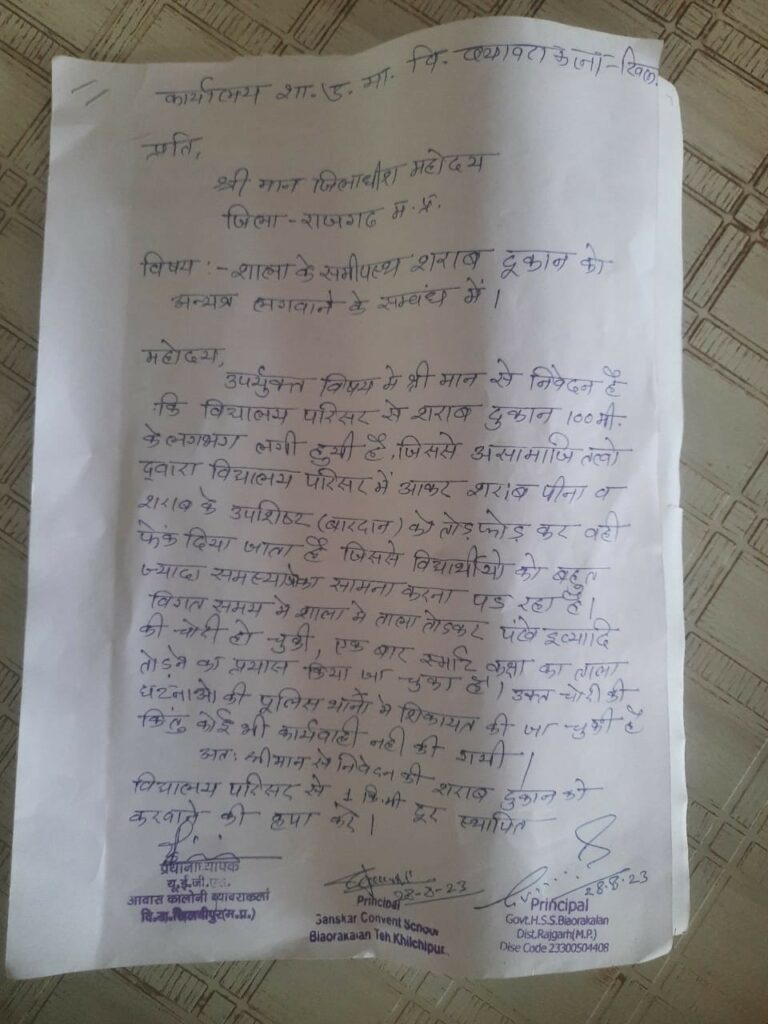 कार्यालय शा. उ. मा. वि. ब्यावराकलाँ-खिल.
प्रति,
श्री मान जिलाधीश महोदय
जिला - राजगढ म. प्र.
विषय :- शाला के समीपस्थ शराब दूकान को
अन्यत्र लगवाने के सम्बंध में।
महोदय,
उपर्युक्त विषय मे श्री मान से निवेदन है
कि विद्यालय परिसर से शराब दुकान 100 मी.
के लगभग लगी हुयी है, जिससे असामाजि तत्वो
द्वारा विद्यालय परिसर में आकर शराब पीना व
शराब के उपशिष्ट (बारदान) को तोड़फोड़ कर वही
फेंक दिया जाता है जिससे विद्यार्थीयो को बहुत
ज्यादा समस्याओका सामना करना पड रहा है।
विगत समय मे शाला मे ताला तोडकर पंखे इत्यादि
की चोरी हो चुकी, एक बार स्मार्ट कक्षा का ताला
तोड़ने का प्रयास किया जा चुका है। उक्त चोरी की
घटनाओ की पूलिस थाने मे शिकायत की जा चुकी है
किंतु कोई भी कार्यवाही नही की गयी।
अतः श्रीमान से निवेदन की शराब दुकान को
विद्यालय परिसर से 1 कि.मी दूर स्थापित
करवाने की कृपा करे।
प्रधानाध्यापक
यू.ई.जी.एस.
आवास कालोनी ब्यावराकलां
वि.ख.खिलचीपुर(म.प्र.)
28-8-23
Principal
Sanskar Convent School
Biaorakalan Teh Khilchipur
28.8.23
Principal
Govt.H.S.S.Biaorakalan
Dist.Rajgarh(M.P.)
Dise Code 23300504408